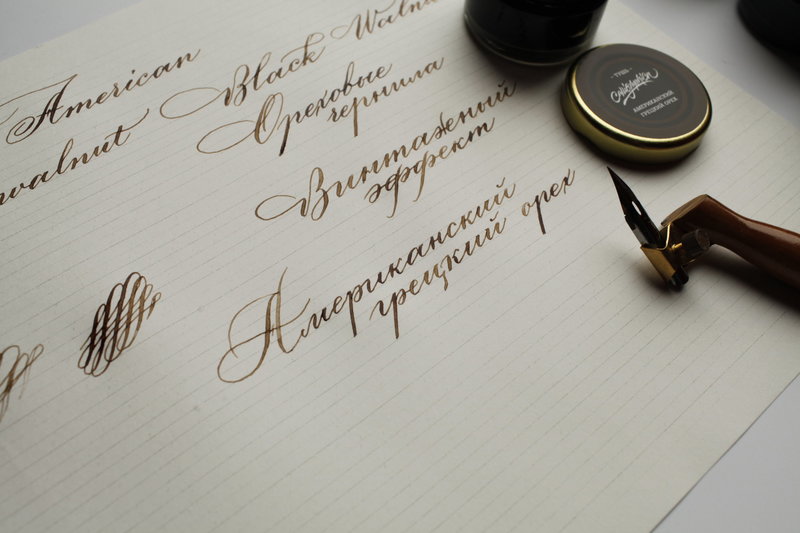 American
walnut
Black Walnut
Ореховые
чернила
Винтажный
эффект
Американский
грецкий орех
ТУШЬ
АМЕРИКАНСКИЙ
ГРЕЦКИЙ ОРЕХ